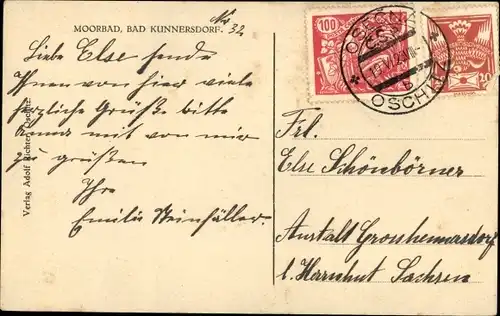 MOORBAD, BAD KUNNERSDORF.
No 32
Liebe Else sende
Ihnen von hier viele
herzliche Grüße bitte
Anna mit von mir
zu grüßen
Ihre
Emilie Steinfüller.
Verlag Adolf Richter,
100
20
OSEČNÁ
OSCHITZ
Frl.
Else Schönbörner
Anstalt Grosshennersdorf
b. Herrnhut Sachsen